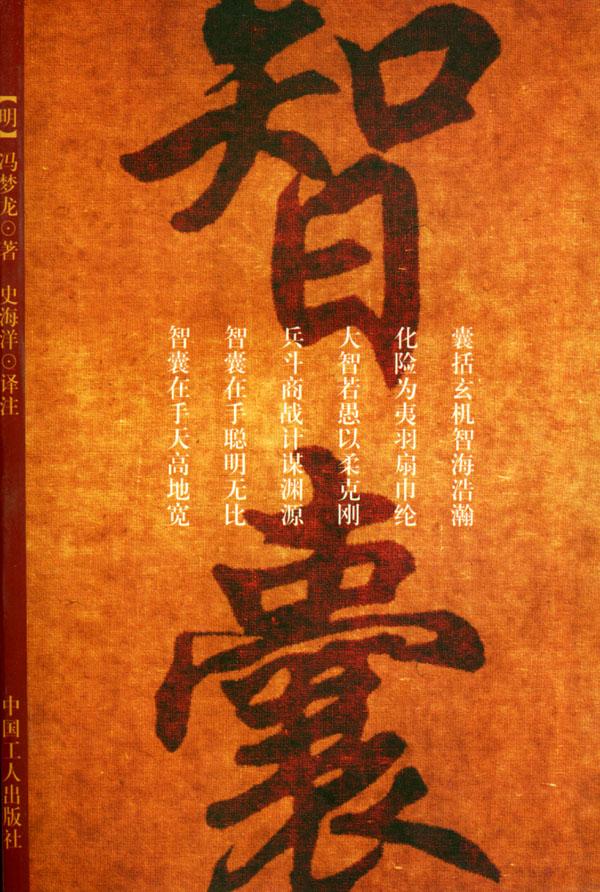 智囊
囊括玄机智海浩瀚
化险为夷羽扇巾纶
大智若愚以柔克刚
兵斗商战计谋渊源
智囊在手聪明无比
智囊在手天高地宽
【明】冯梦龙⊙著 史海洋⊙译注
中国工人出版社